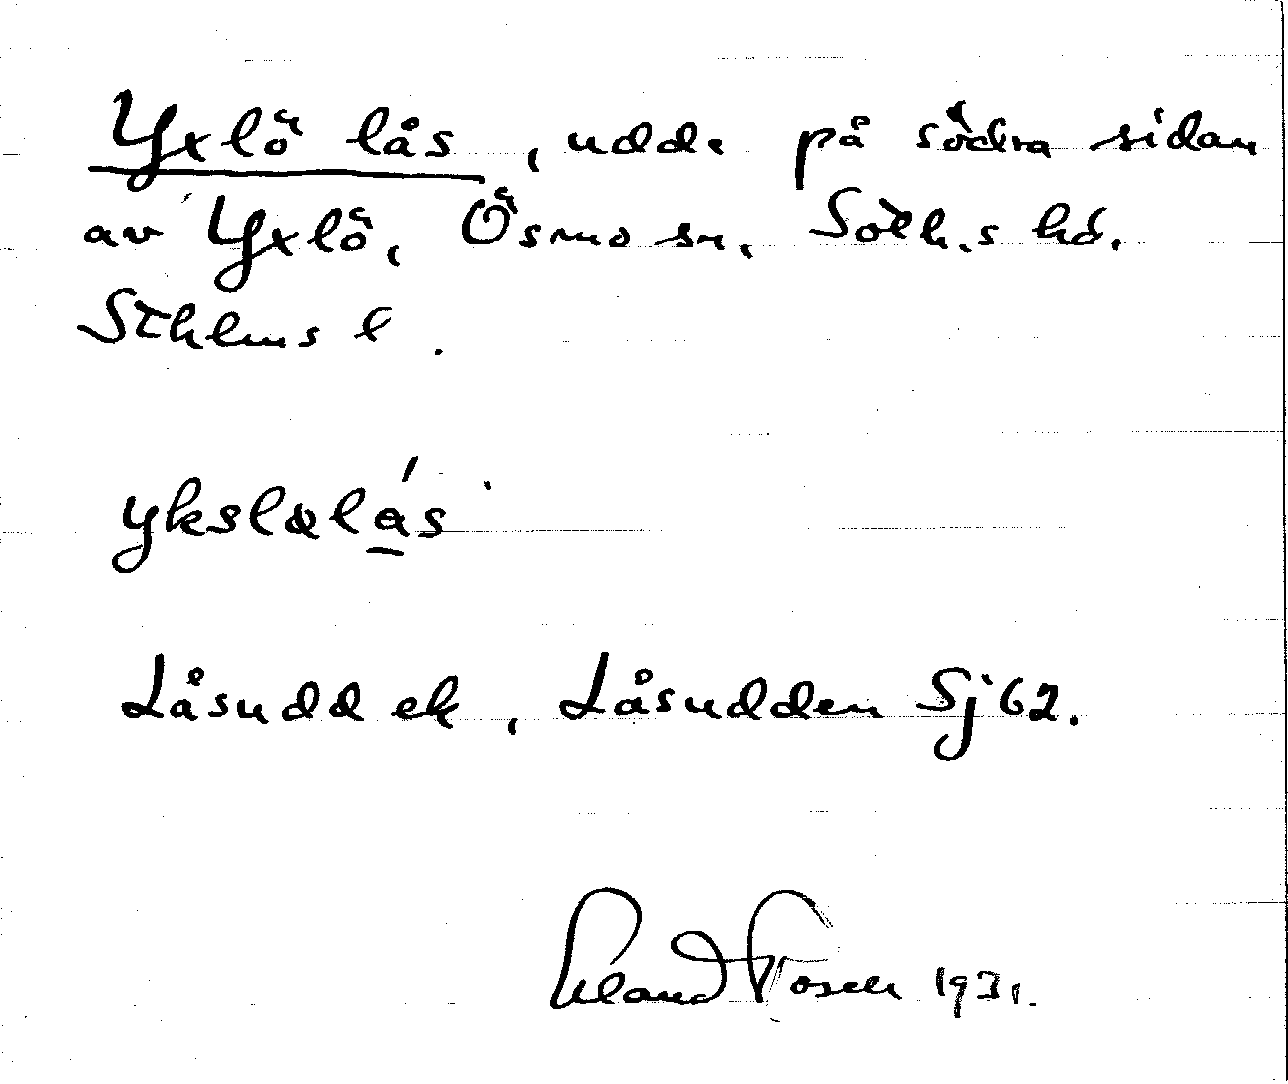 Yxlö lås, udde på södra sidan
av Yxlö, Ösmo sn, Sotk.s hd.
Sthlms l.
ykslɷlás
Låsudd ek, Låsudden Sj 62.
Erland Rosell 1931.